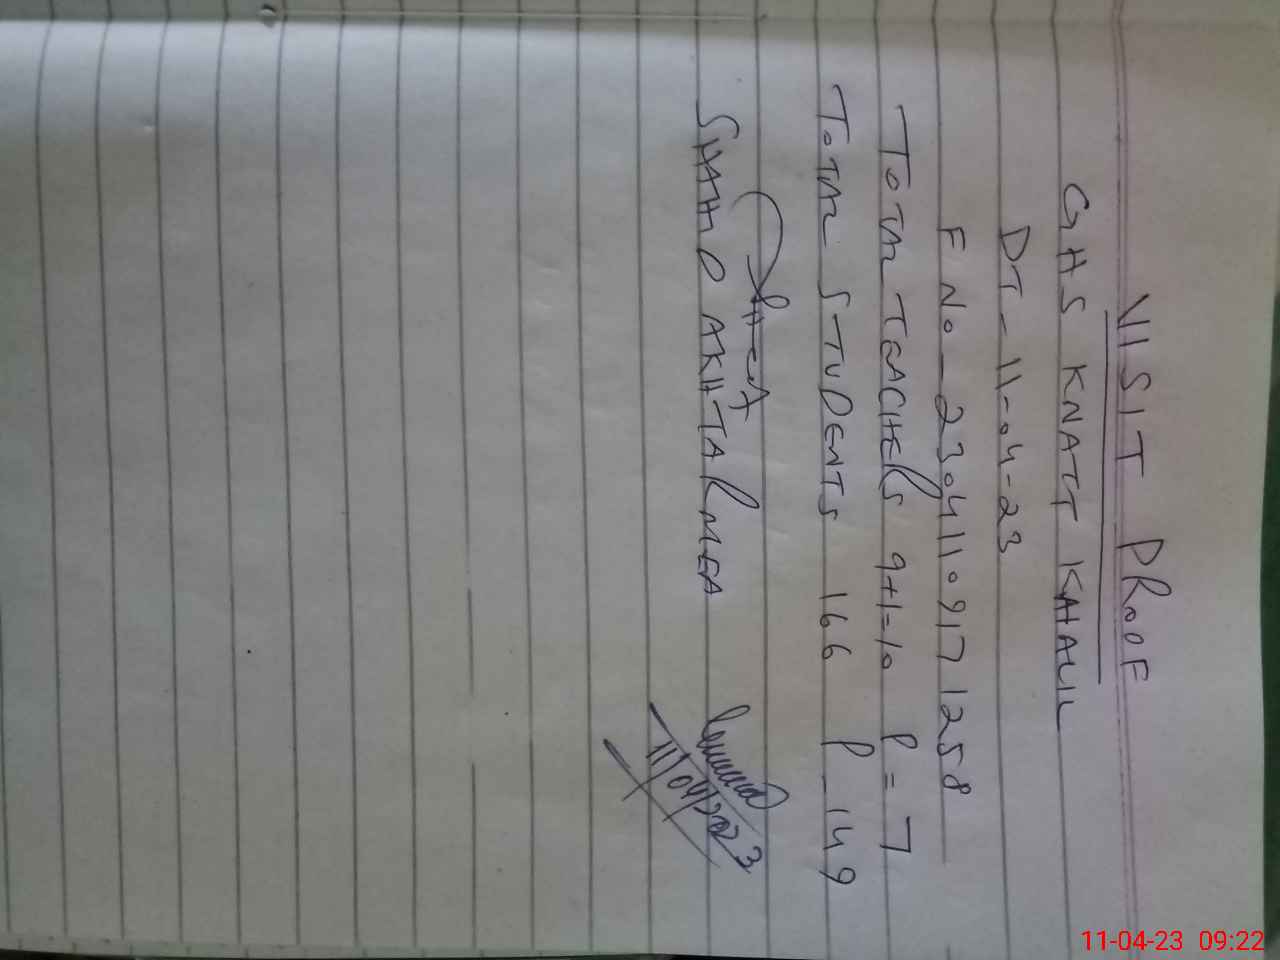 VISIT PROOF
GHS KNATT KHALIL
DT-11-04-23
F No-23041109171258
TOTAL TEACHERS 9+1=10 P=7
TOTAL STUDENTS 166 P-149
SHAHID AKHTAR MEA
11/04/2023
11-04-23 09:22